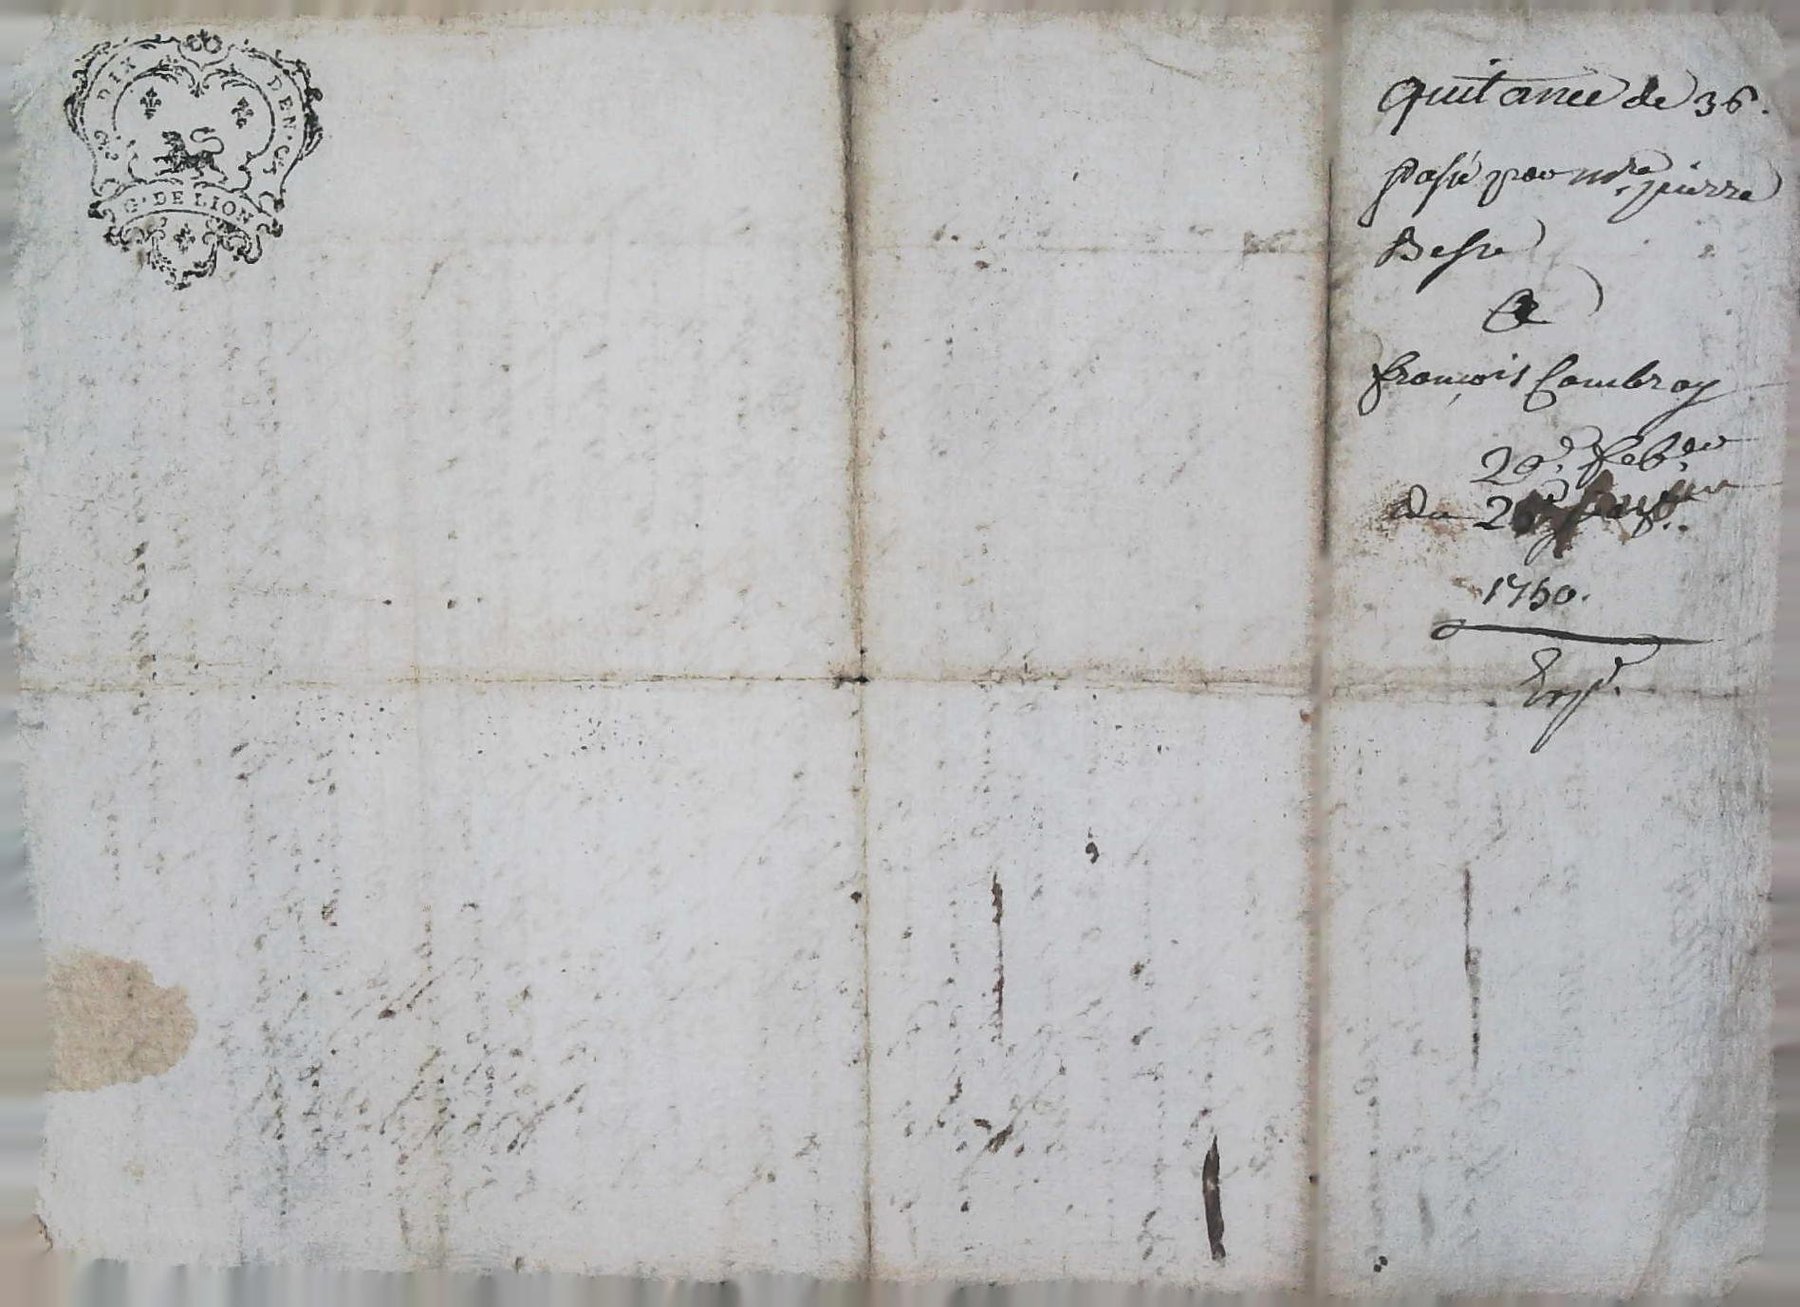 DIX DEN.
G. DE LION
quitance de 36.
passé par m.re pierre
Besse
A
françois Combroy
20.e feb.er
du 2
1750.
Exp.é